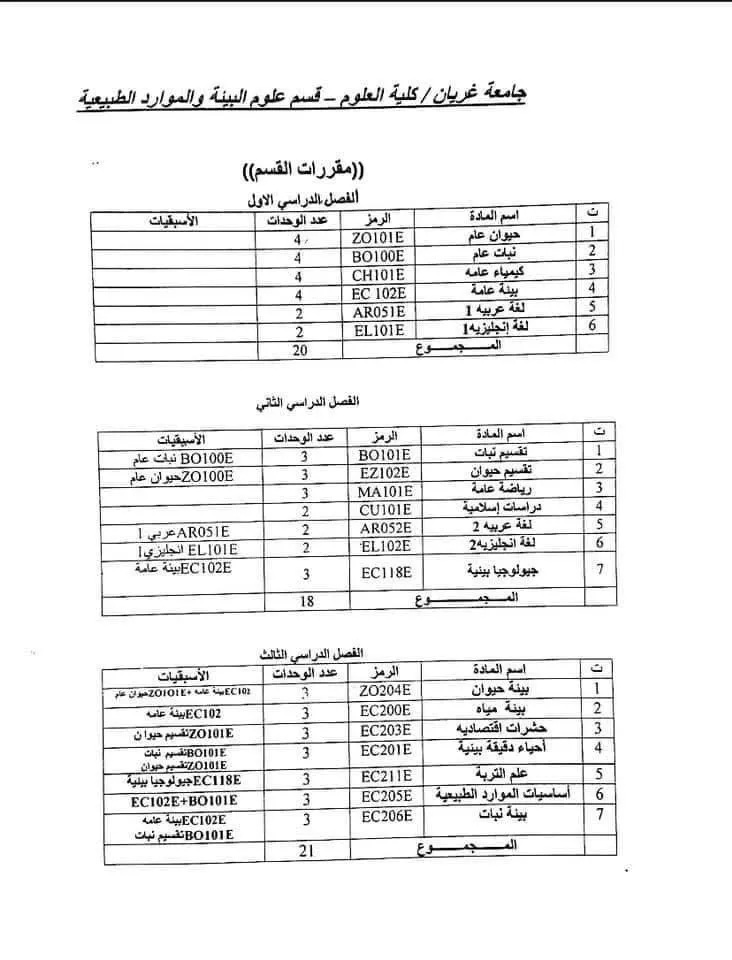 جامعة غريان / كلية العلوم – قسم علوم البيئة والموارد الطبيعية
((مقررات القسم))
الفصل الدراسي الاول
ت اسم المادة الرمز عدد الوحدات الأسبقيات
1 حيوان عام ZO101E 4
2 نبات عام BO100E 4
3 كيمياء عامه CH101E 4
4 بيئة عامة EC 102E 4
5 لغة عربيه 1 AR051E 2
6 لغة إنجليزيه1 EL101E 2
المـــجمـــوع 20
الفصل الدراسي الثاني
ت اسم المادة الرمز عدد الوحدات الأسبقيات
1 تقسيم نبات BO101E 3 BO100E نبات عام
2 تقسيم حيوان EZ102E 3 ZO100Eحيوان عام
3 رياضة عامة MA101E 3
4 دراسات إسلامية CU101E 2
5 لغة عربيه 2 AR052E 2 AR051Eعربي 1
6 لغة انجليزيه2 EL102E 2 EL101E انجليزي1
7 جيولوجيا بيئية EC118E 3 EC102Eبيئة عامة
المـــجمـــوع 18
الفصل الدراسي الثالث
ت اسم المادة الرمز عدد الوحدات الأسبقيات
1 بيئة حيوان ZO204E 3 EC102بيئة عامه +ZO101Eحيوان عام
2 بيئة مياه EC200E 3 EC102بيئة عامه
3 حشرات اقتصاديه EC203E 3 ZO101Eتقسيم حيوان
4 أحياء دقيقة بيئية EC201E 3 BO101Eتقسيم نبات
ZO101Eتقسيم حيوان
5 علم التربة EC211E 3 EC118Eجيولوجيا بيئية
6 أساسيات الموارد الطبيعية EC205E 3 EC102E+BO101E
7 بيئة نبات EC206E 3 EC102Eبيئة عامه
BO101Eتقسيم نبات
المـــجمـــوع 21